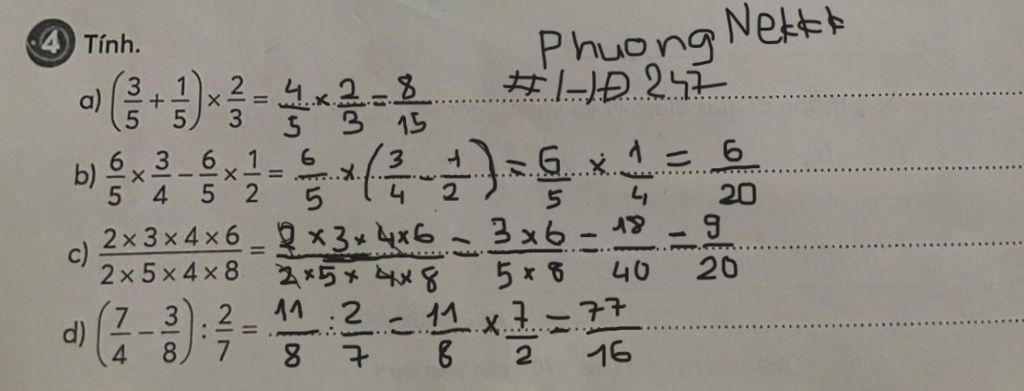 4 Tính.
Phuong Nekkk
#HĐ247
a) (3/5 + 1/5) × 2/3 = 4/5 × 2/3 = 8/15
b) 6/5 × 3/4 − 6/5 × 1/2 = 6/5 × (3/4 − 1/2) = 6/5 × 1/4 = 6/20
c) 2 × 3 × 4 × 6 / 2 × 5 × 4 × 8 = 2 × 3 × 4 × 6 / 2 × 5 × 4 × 8 = 3 × 6 / 5 × 8 = 18/40 = 9/20
d) (7/4 − 3/8) : 2/7 = 11/8 : 2/7 = 11/8 × 7/2 = 77/16